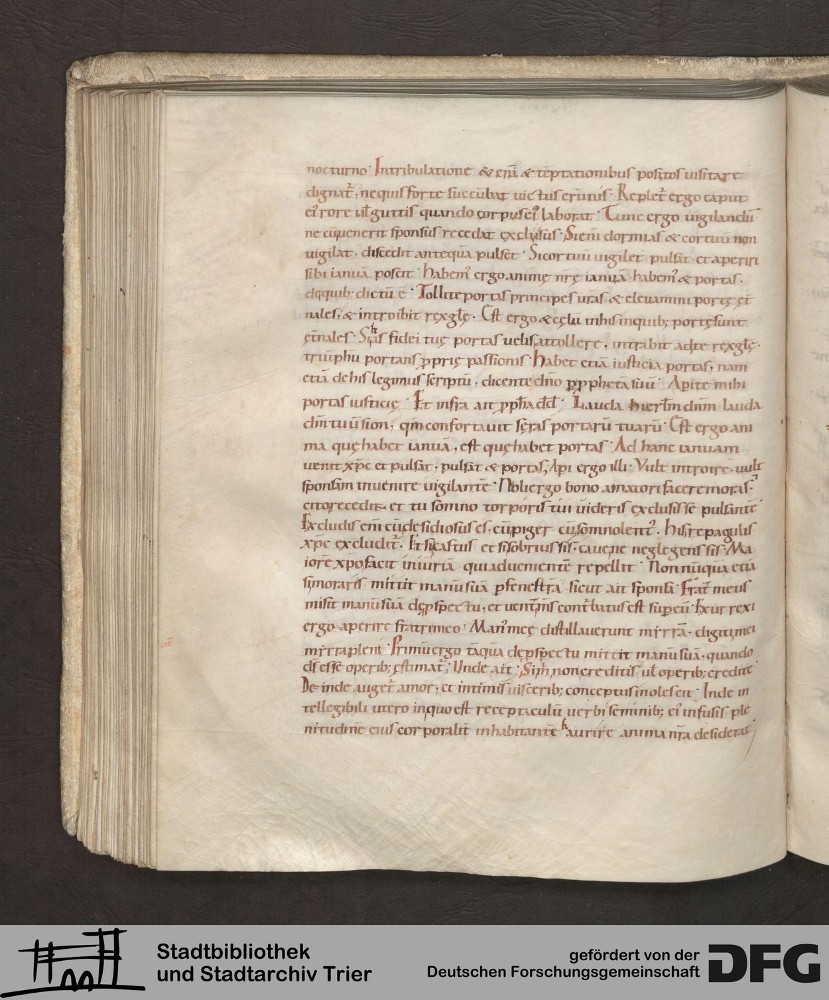 nocturno · In tribulatione & eni᷒ & tēptationibus positos uisitare
dignat᷒, ne quis forte succūbat uictus erūnis · Replet᷒ ergo caput
ei᷒ rore ul᷒ guttis quando corpus ei᷒ laborat · Tunc ergo uigilandū
ne cū uenerit sponsus recedat exclusus · Si eni᷒ dormias & cor tuū non
uigilat · discedit antequā pulset · Si cor tuū uigilet pulsat · et aperiri
sibi ianuā poscit · habem᷒ ergo animę nrę ianuā habem᷒ & portas ·
de quib; dictū ē · Tollite portas principes uras & eleuamini portę et̄
nales, & introibit rex glę · Est ergo & ęclu in his inquib; portę sunt
et̄nales · Si has fidei tuę portas uelis attollere, intrabit ad te rex glę ·
triūphū portans ꝓprię passionis · habet etiā iusticia portas, nam
etiā de his legimus scriptū, dicente dn̄o ꝑ ꝓphetā suū · Apite mihi
portas iusticię · Et infra ait ꝓph̄a dd̄ · Lauda hierlm̄ dnm̄ lauda
dm̄ tuū sion, qm̄ confortauit seras portarū tuarū · Est ergo ani
ma quę habet ianuā, est quę habet portas · Ad hanc ianuam
uenit xp̄c et pulsat, pulsat & portas, Api ergo illi · Vult introire, uult
sponsam inuenire uigilantē · Noli ergo bono amatori facere moras ·
cito recedit · et tu somno torporis tui uideris exclusisse pulsantē
Excludis eni᷒ cū desidiosus es, cū piger cū somnolent᷒ · his repagulis
xp̄c excludit᷒ · Et si castus et si sobrius sis, caue ne neglegens sis · Ma
iorē xp̄o facit iniuriā qui aduenientē repellit · Non nūquā etiā
si moraris mittit manū suā ꝑ fenestrā sicut ait sponsa · Frat᷒ meus
misit manū suā de ꝓspectu, et uent᷒ ms̄ conturbatus est sup eū · Exurrexi
ergo aperire fratri meo · Man᷒ meę distillauerunt mirrā, digiti mei
mirra pleni · Primū ergo tāquā de ꝓspectu mittit manū suā, quando
ds̄ esse operib; ęstimat᷒ · Unde ait · Si m non creditis ul᷒ operib; credite ·
Deinde auget᷒ amor, et intimis uiscerib; conceptus inolescit · Inde in
tellegibili utero in quo est receptaculū uerbi seminib; ei᷒ infusis ple
nitudinē eius corporalit᷒ inhabitantē haurire anima nr̄a desiderat
Stadtbibliothek
und Stadtarchiv Trier
gefördert von der
Deutschen Forschungsgemeinschaft
DFG